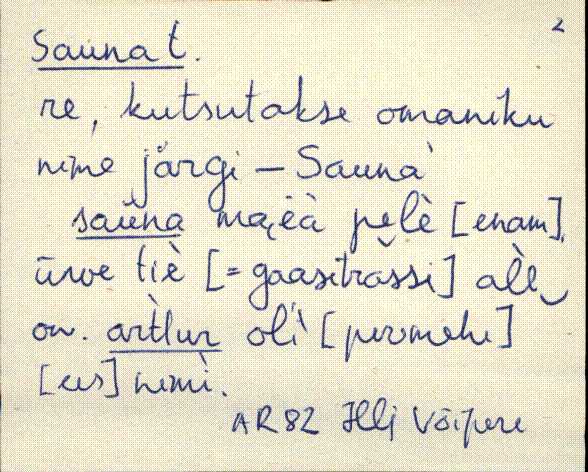 2
Sauna t.
re, kutsutakse omaniku
nime järgi – Sauna
sauna ma̬ëà pe̬lè [enam].
ūrve tiè [= gaasitrassi] all
on. àrtlur oli [peremehe]
[ees] nimi.
AR82 Illi Võipere